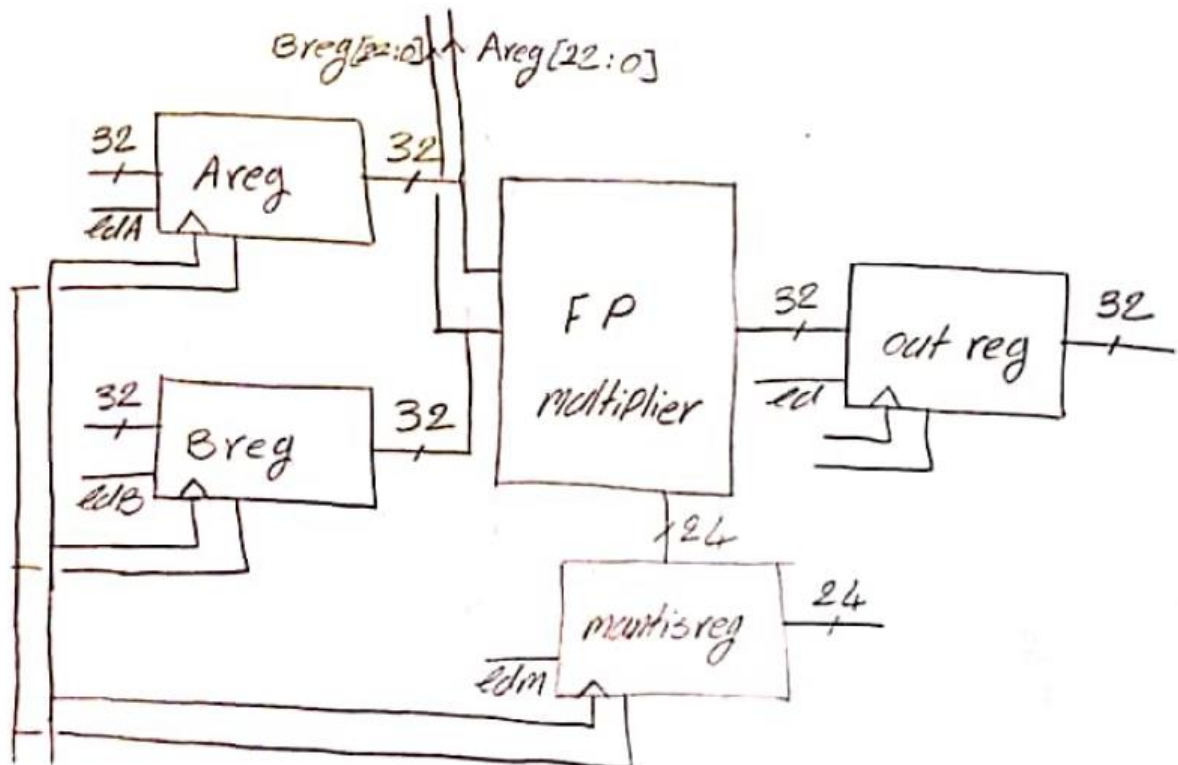 Breg[22:0] Areg[22:0]
32
Areg
32
ldA
FP
multiplier
32
out reg
32
ld
32
Breg
32
ldB
24
mantisreg
24
ldM